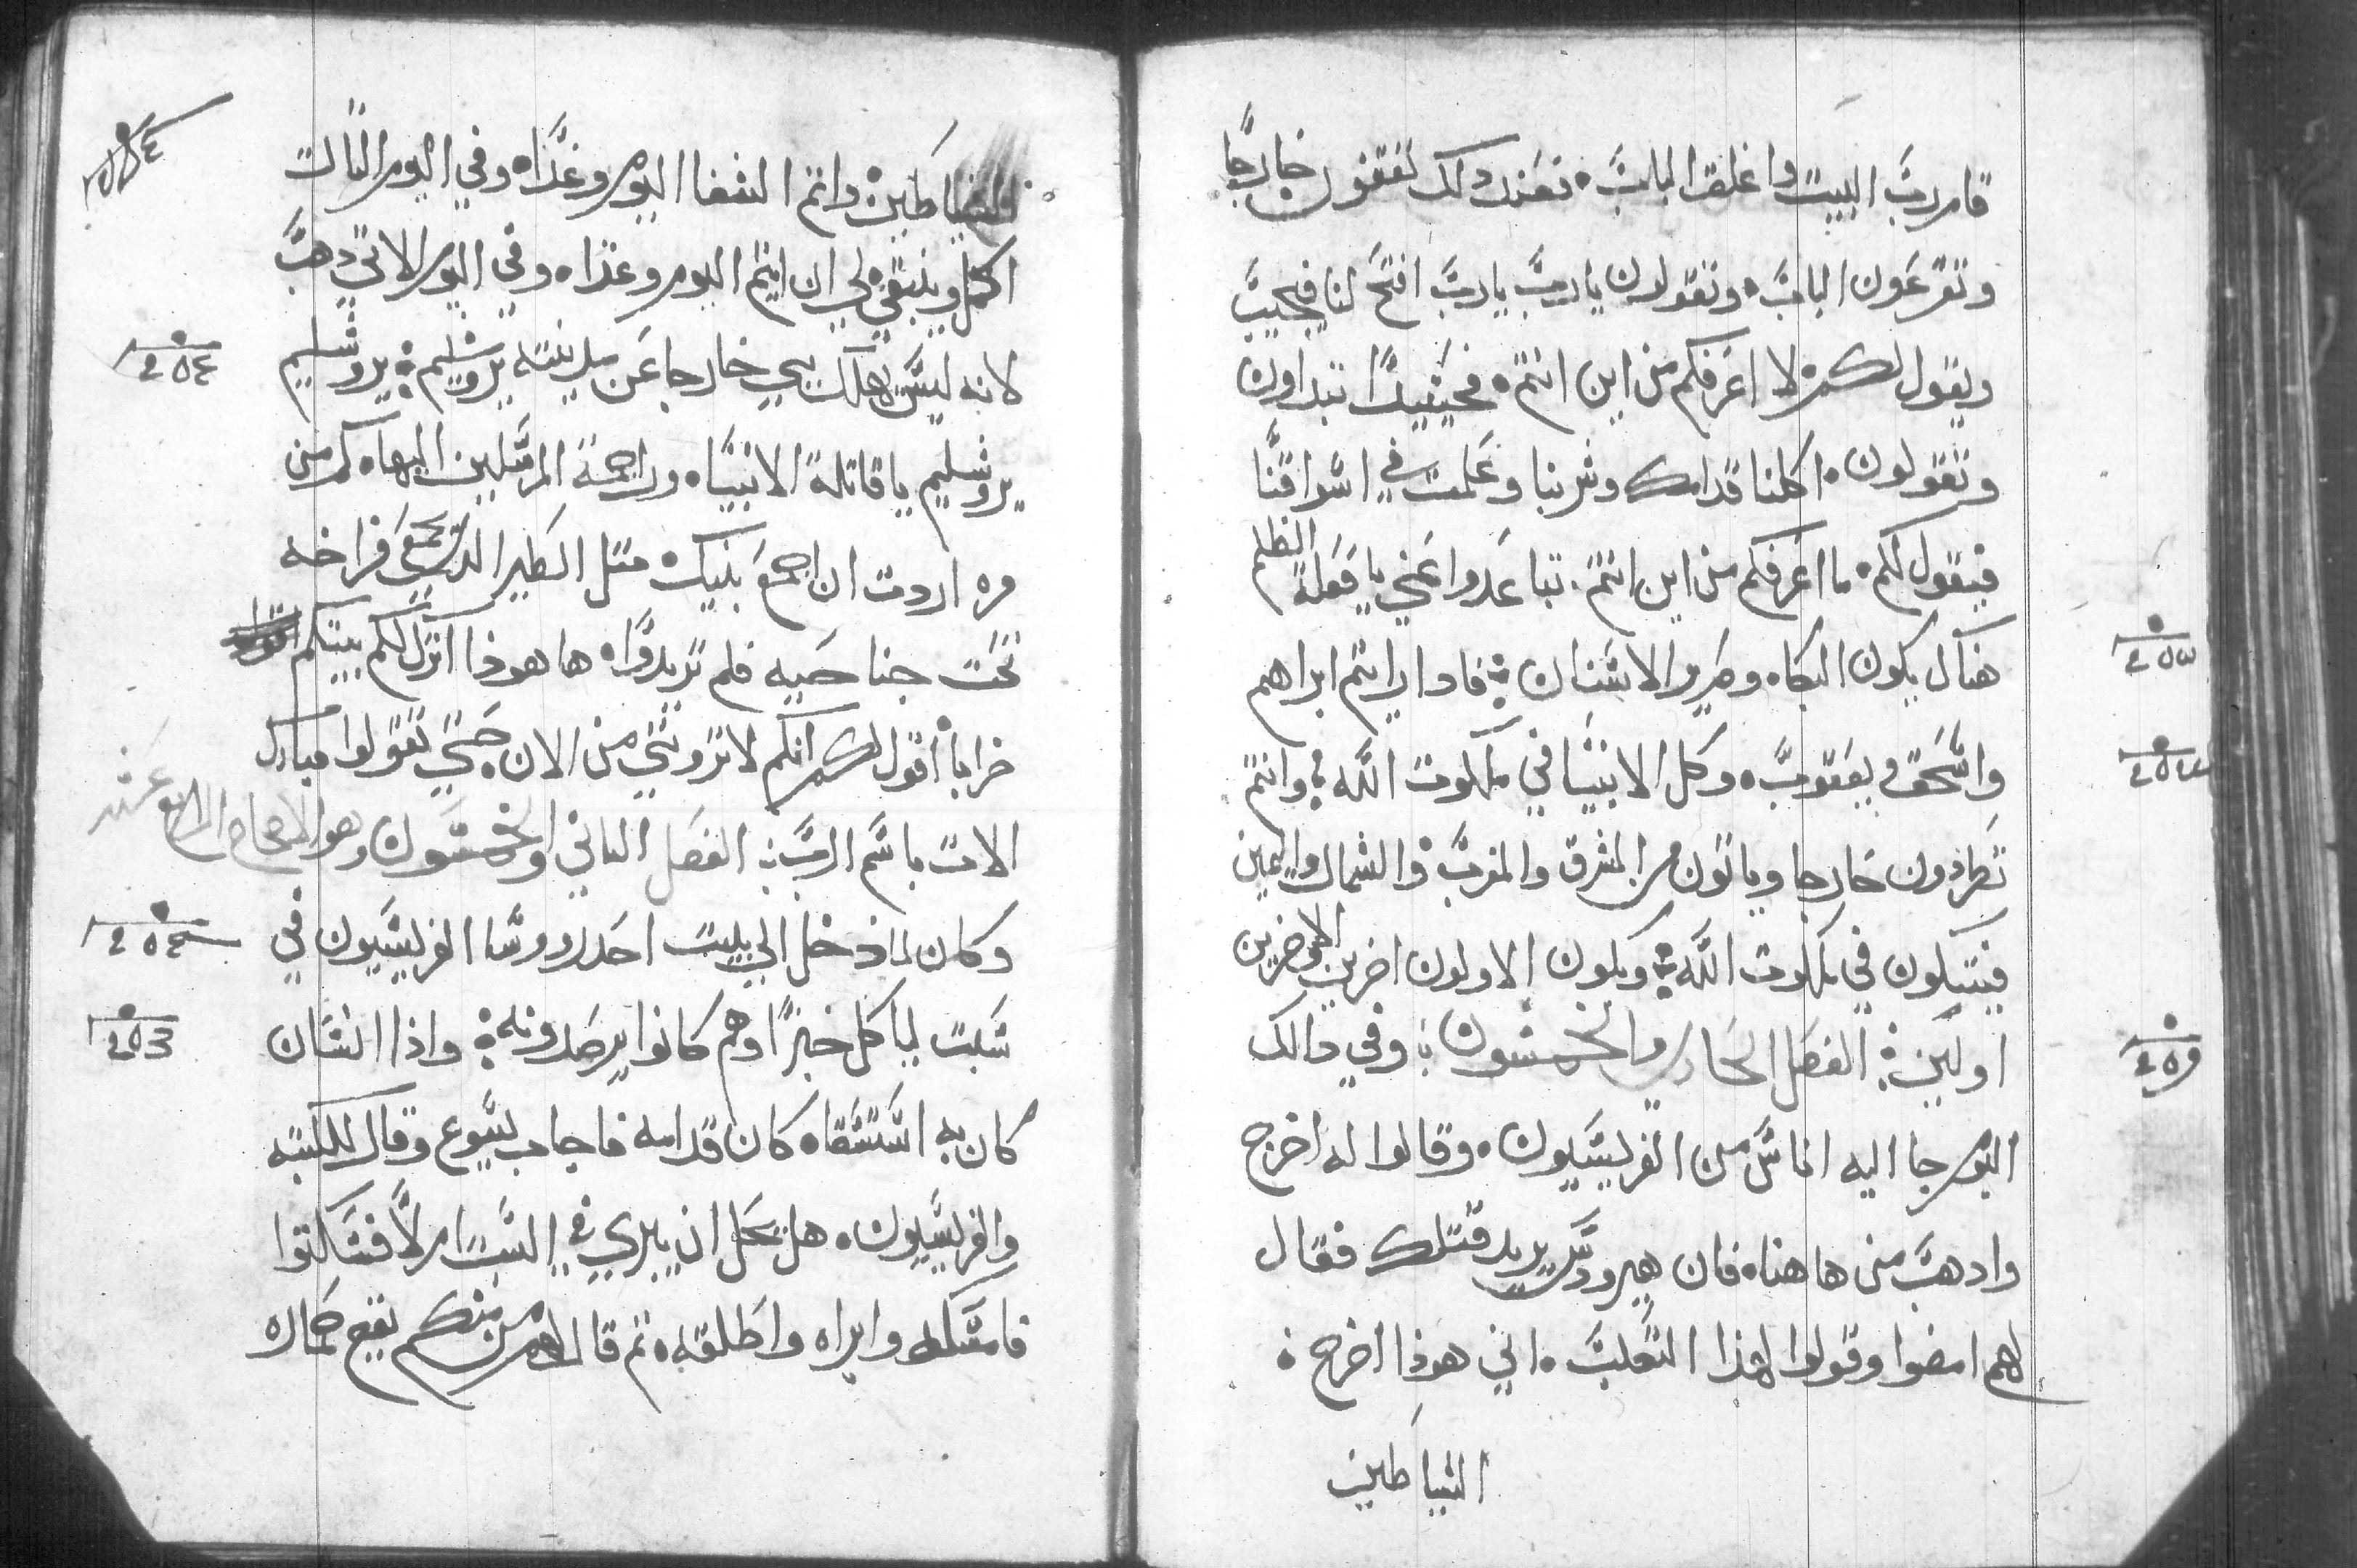 قام رب البيت واغلق الباب، فعند دلك تقفون خارجًا
وتقرعون الباب، وتقولون يارب يارب افتح لنا فيجيب
ويقول لكم لا اعرفكم من اين انتم، فحينيدًا تبداون
وتقولون، اكلنا قدامك وشربنا وعلمت في اسواقنا
فيقول لكم، ما اعرفكم من اين انتم، تباعدوا عني يا فعلة الظلم
هناك يكون البكاء وصرير الاسنان؛ فادا رايتم ابراهيم
واسحق ويعقوب، وكل الانبيا في ملكوت الله؛ وانتم
تطردون خارجا وياتون من المشرق والمغرب والشمال واليمين
فيتكون في ملكوت الله؛ ويكون الاولون اخرين والاخرين
اولين؛ الفصل الحادي والخمسون؛ وفي دالك
اليوم جا اليه اناس من الفريسيون، وقالوا له اخرج
وادهب من هاهنا، فان هيرودس يريد قتلك فقال
لهم امضوا وقولوا لهذا الثعلب، اني هوذا اخرج،
الشياطين
الشياطين واتم الشفا اليوم وغدًا، وفي اليوم الثالت
اكمل وينبغي لي ان اتم اليوم وغدا، وفي اليوم الاتي دهب
لانه ليس يهلك نبي خارجا عن مدينته يروشليم؛ يروشليم
يروشليم يا قاتلة الانبيا، وراجمة المرسلين اليها، كم من
مره اردت ان اجمع بنيك، متل الطير الدي يجمع فراخه
تحت جناحيه فلم تريدوا، ها هوذا اترك لكم بيتكم
خرابا، اقول لكم انكم لا ترونني من الان حتي تقولوا مبارك
الات باسم الرب؛ الفصل التاني والخمسون وهو الاصحاح الرابع عشر
وكان لما دخل الي بيت احد روسا الفريسيون في
سبت لياكل خبزًا وهم كانوا يرصدونه؛ واذا انسان
كان به استسقا، كان قدامه فاجاب يسوع وقال للكتبه
والفريسيون، هل يحل ان يبري في السبت ام لا فسكتوا
فامسكه وابراه واطلقه، تم قال لهم من منكم يقع حماره